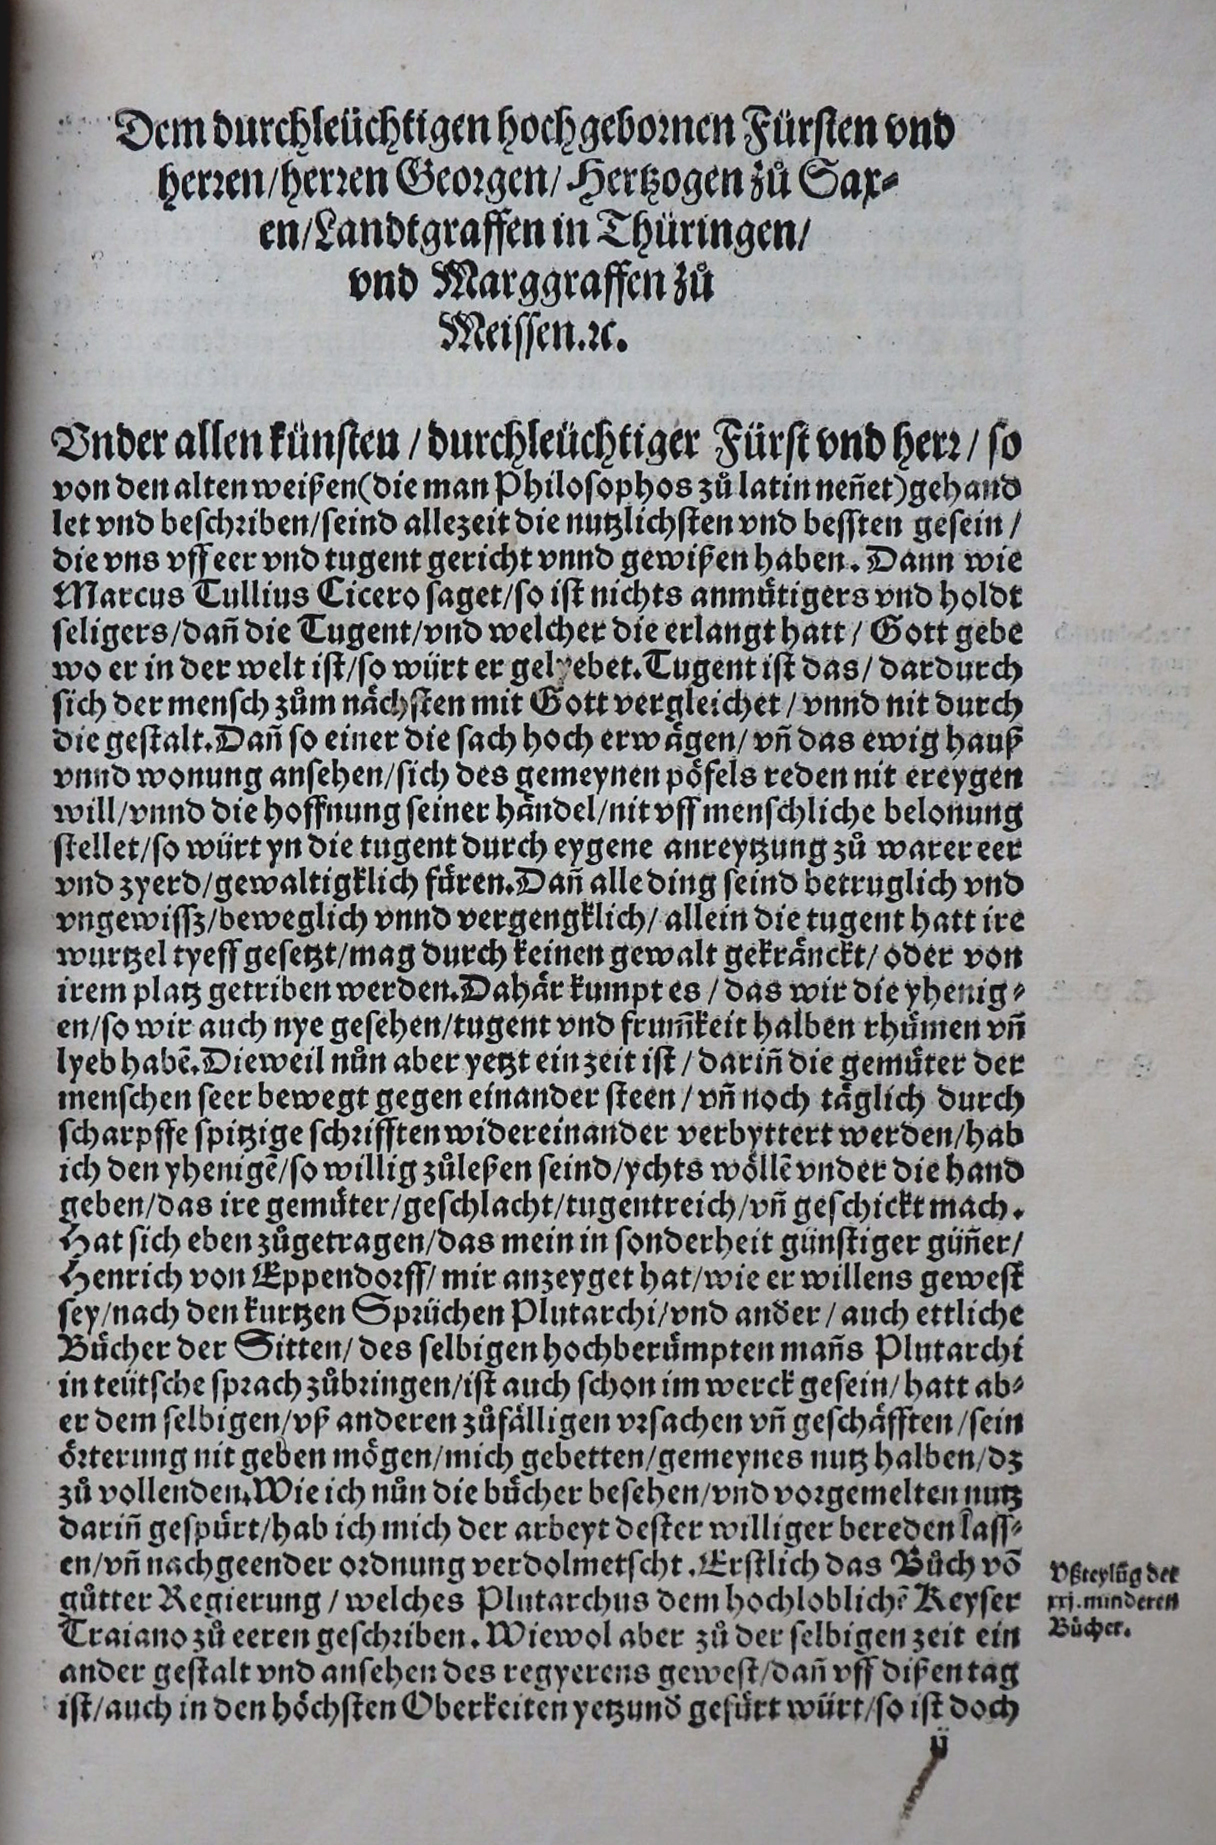 Dem durchleüchtigen hochgebornen Fürsten vnd
herren/herren Georgen/ Hertzogen zů Sax⸗
en/Landtgraffen in Thüringen/
vnd Marggraffen zů
Meissen.ꝛc.
Vnder allen künsten / durchleüchtiger Fürst vnd herr / so
von den alten weißen(die man Philosophos zů latin neñet)gehand
let vnd beschriben/seind allezeit die nutzlichsten vnd bessten gesein /
die vns vff eer vnd tugent gericht vnnd gewißen haben. Dann wie
Marcus Tullius Cicero saget/so ist nichts anmuͤtigers vnd holdt
seligers/dañ die Tugent/vnd welcher die erlangt hatt / Gott gebe
wo er in der welt ist/so würt er gelyebet.Tugent ist das/ dardurch
sich der mensch zům naͤchsten mit Gott vergleichet / vnnd nit durch
die gestalt.Dañ so einer die sach hoch erwaͤgen/ vñ das ewig hauß
vnnd wonung ansehen/sich des gemeynen poͤfels reden nit ereygen
will/vnnd die hoffnung seiner haͤndel/nit vff menschliche belonung
stellet/so würt yn die tugent durch eygene anreytzung zů warer eer
vnd zyerd/gewaltigklich fuͤren.Dañ alle ding seind betruglich vnd
vngewissz/beweglich vnnd vergengklich/ allein die tugent hatt ire
wurtzel tyeff gesetzt/mag durch keinen gewalt gekraͤnckt/ oder von
irem platz getriben werden.Dahaͤr kumpt es / das wir die yhenig⸗
en/so wir auch nye gesehen/tugent vnd frum̃keit halben rhuͤmen vñ
lyeb habẽ.Dieweil nůn aber yetzt ein zeit ist / dariñ die gemuͤter der
menschen seer bewegt gegen einander steen / vñ noch taͤglich durch
scharpffe spitzige schrifften widereinander verbyttert werden/hab
ich den yhenigẽ/so willig zůleßen seind/ychts woͤllẽ vnder die hand
geben/das ire gemuͤter/geschlacht/tugentreich/vñ geschickt mach.
Hat sich eben zůgetragen/das mein in sonderheit günstiger güñer/
Henrich von Eppendorff/ mir anzeyget hat/wie er willens gewest
sey/nach den kurtzen Sprüchen Plutarchi/vnd ander / auch ettliche
Buͤcher der Sitten/ des selbigen hochberuͤmpten mañs Plutarchi
in teütsche sprach zůbringen/ist auch schon im werck gesein/ hatt ab⸗
er dem selbigen/vß anderen zůfaͤlligen vrsachen vñ geschaͤfften /sein
oͤrterung nit geben moͤgen/mich gebetten/gemeynes nutz halben/dz
zů vollenden.Wie ich nůn die buͤcher besehen/vnd vorgemelten nutz
dariñ gespuͤrt/hab ich mich der arbeyt dester williger bereden lass⸗
en/vñ nachgeender ordnung verdolmetscht.Erstlich das Bůch võ
gůtter Regierung / welches Plutarchus dem hochloblichẽ Keyser
Traiano zů eeren geschriben. Wiewol aber zů der selbigen zeit ein
ander gestalt vnd ansehen des regyerens gewest/dañ vff dißen tag
ist/auch in den hoͤchsten Oberkeiten yetzund gefuͤrt würt/so ist doch
Vßteylũg der
xxj.munderen
Buͤcher.
ij